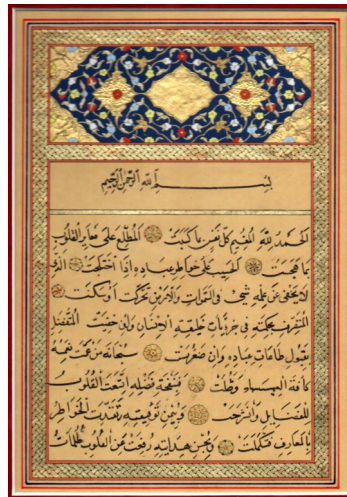 بسم الله الرحمن الرحيم
الحمد لله القيم كل نفس بما كسبت المطلع على سائر القلوب
بما هجست الحسيب على خواطر عباده اذا اختلجت الذى
لا يخفى عن علمه شئ فى السموات والارض تحركت او سكنت
بحكمته فى جزئيات خليقته وان خفيت المتفضل
بقبول طاعات عباده وان صغرت سبحانه من عمت نعمته
كافة العباد وظلت فبنفحة فضله اتسعت القلوب
وانزجت وبيمن توفيقه تقيدت الخواطر
بالمعارف وبحسن هدايته رفعت عن القلوب ظلمات